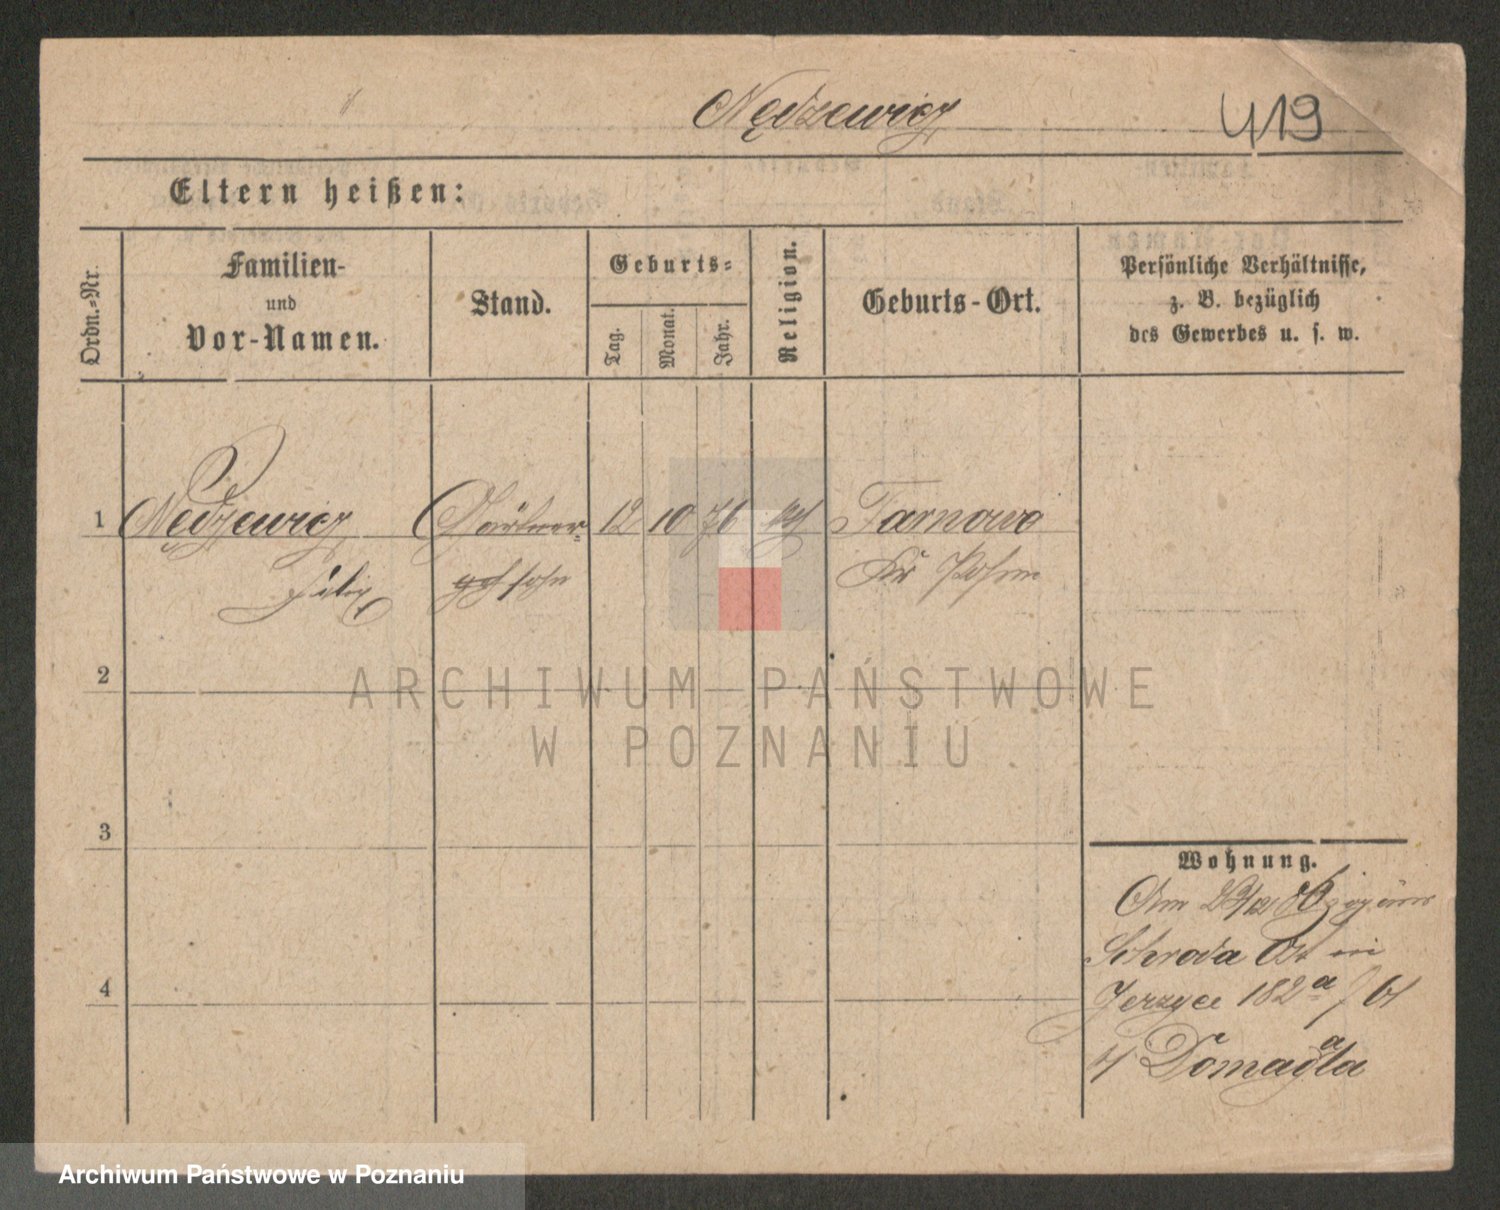 Nędzewicz
419
Eltern heißen:
Ordn.-Nr.
Familien-
und
Vor-Namen.
Stand.
Geburts-
Tag.
Monat.
Jahr.
Religion.
Geburts-Ort.
Persönliche Verhältnisse,
z. B. bezüglich
des Gewerbes u. s. w.
1 Nędzewicz Gärtner- 12 10 76 Tarnowo
Felix sohn Kr Posen
2
3
4
Wohnung.
Am 29/12
Schroda Ost in
Jerzyce 182a
Domagała
ARCHIWUM PAŃSTWOWE
W POZNANIU
Archiwum Państwowe w Poznaniu